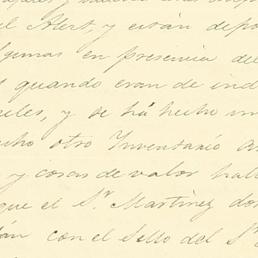 el Alert, y están depo
lgemas en presencia del
y quando eran de ind
eles, y se há hecho un
cho otro Inventario a
y cosas de valor hal
que el Sr. Martinez do
con el Sello del Sr.